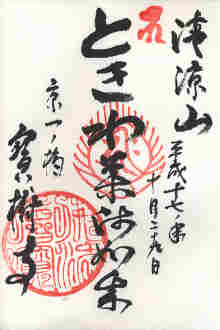 清涼山
平成十七年
十月二十九日
ときわ薬師如来
京一ノ橋
寶樹寺